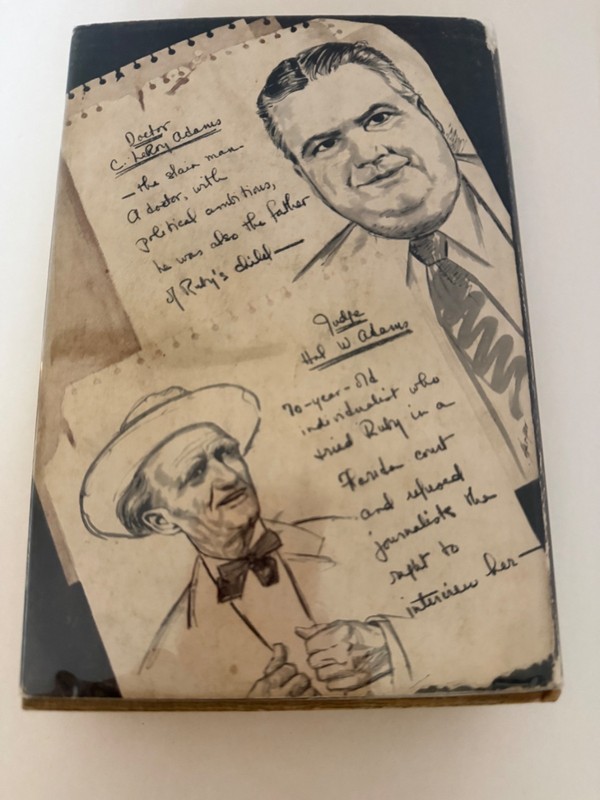 Doctor
C. LeRoy Adams
— the slain man.
A doctor, with
political ambitions,
he was also the father
of Ruby's child —
Judge
Hal W. Adams
70-year-old
individualist who
tried Ruby in a
Florida court
and refused
journalists the
right to
interview her —